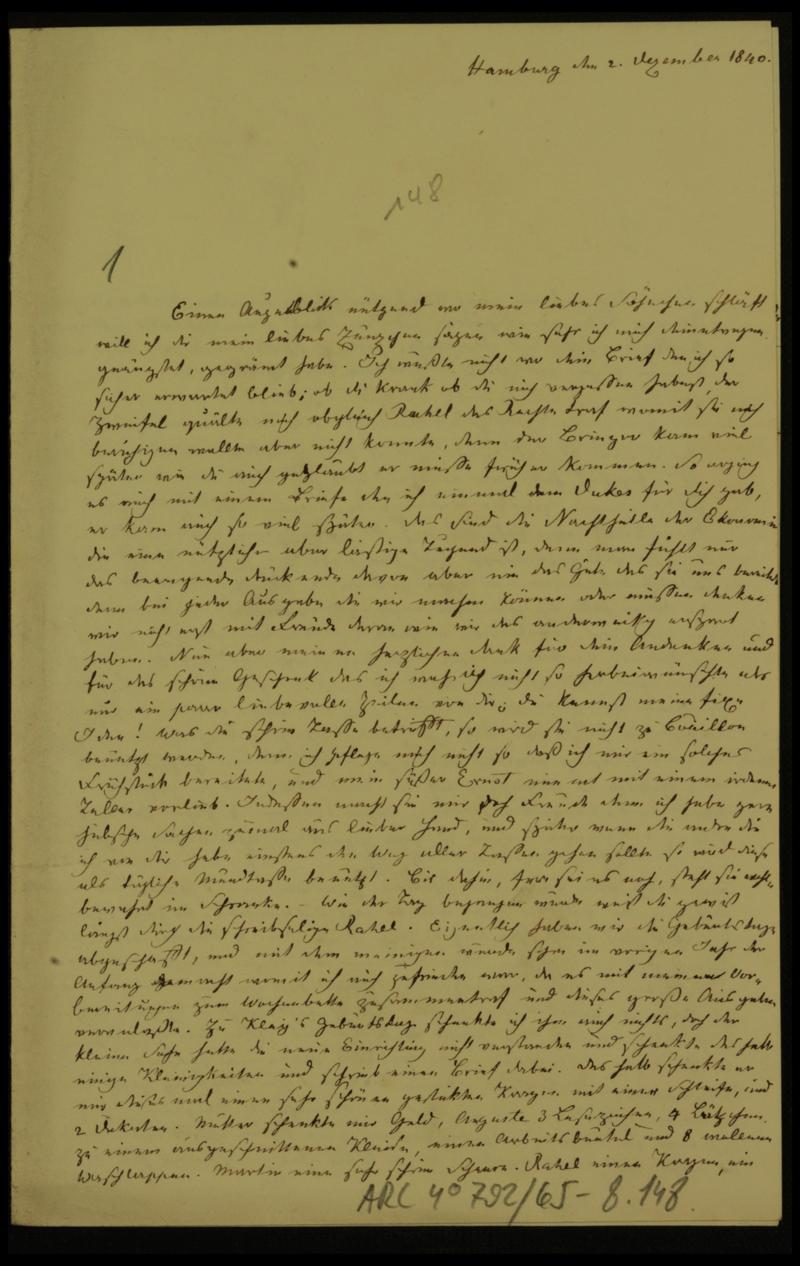 Hamburg den 2. Dezember 1840.
148
1
Einen Augenblick nützend wo mein liebes Söhnchen schläft
will ich dir mein liebes sagen wie sehr ich mich deinetwegen
geängstet, gegrämt habe. Ich wußte nicht wo dein Brief den ich so
sicher erwartet blieb; ob du krank ob du mich vergessen habest, der
Zweifel quälte mich obgleich Rahel das Rechte traf womit sie mich
beruhigen wollte aber nicht konnte, denn der Bringer kam viel
später wie du auch geglaubt er müsse früher kommen. So erging
es mich mit einem Briefe den ich einmal dem für dich gab,
er kam auch so viel später. Das sind die Nachtheile der Ekonomie
die eine nützliche aber lästige Tugend ist, denn man fühlt nur
das beengende drückende davon aber nie das Gute das sie uns bereitet
denn bei jeder Ausgabe die wir machen können oder müssen denken
wir nicht erst mit Freude daran wie wir das anderweitig erspart
haben. Nun aber meinen herzlichen Dank für dein Andenken und
für das schöne Geschenk das ich wahrlich nicht so herbeiwünschte als
nur ein paar liebevolle Zeilen von dir; du kennst meine fixe
Idee! Was die schöne Tasse betrifft, so wird sie nicht zu Bouillon
benutzt werden, denn ich pflege mich nicht so daß ich mir ein solches
Frühstück bereitete, und mein süßer Ernst nimmt mit einem irdenen
Teller vorlieb. Indessen macht sie mir doch Freude denn ich habe gern
hübsche Sachen zumal aus lieber Hand, und später wenn die andre die
ich von dir habe einstens den Weg aller Tassen gehen sollte so wird diese
als tägliche benutzt. Bis dahin, fern sei es noch, steht sie wohl-
bewahrt im Schranke. – Wie der Tag begangen wurde weißt du gewiß
längst durch die schreibselige Rahel. Eigentlich haben wir die Geburtstage
abgeschafft, und mit dem meinigen wurde schon im vorigen Jahr der
Anfang gemacht womit ich auch zufrieden war, da es mit meinen Vor-
bereitungen zum Wochenbette zusammentraf und dieses große Ausgaben
veranlaßte. Zu Geburtstag schenkte ich ihm auch nichts, doch der
kleine hatte die neue Einrichtung nicht verstanden und schenkte deshalb
einige Kleinigkeiten und schrieb einen Brief dabei. Deshalb schenkte er
mir diesmal einen sehr schönen gestickten Kragen mit einer Schleife, und
2 Dukaten. Mutter schenkte mir Geld, Auguste 3 Lesezeichen, 4 Lätzchen
zu einem ausgeschnittenen Kleide, einen Arbeitsbeutel und 8 wollene
Waschlappen. Martin eine sehr schöne Rahel einen Kragen, ein
ARC 4° 792/65-8.148